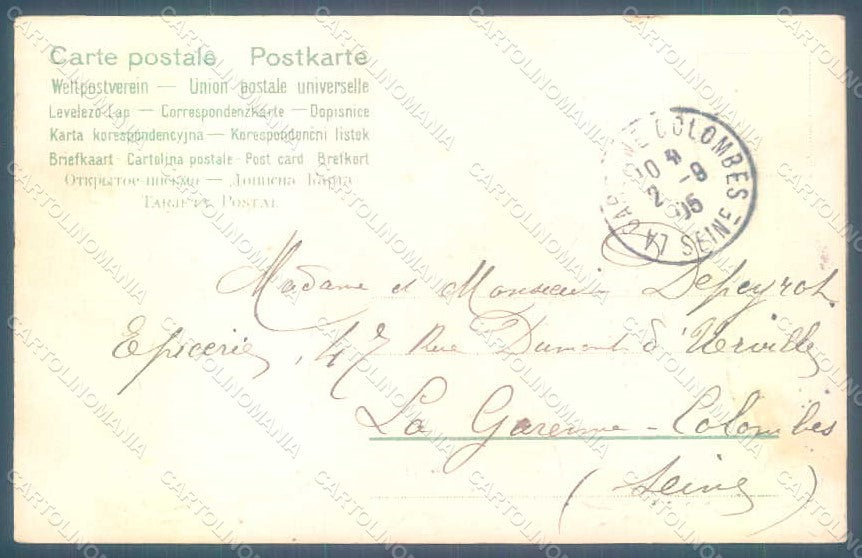 Carte postale Postkarte
Weltpostverein — Union postale universelle
Levelező-Lap — Correspondenzkarte — Dopisnice
Karta korespondencyjna — Korespondenčni listek
Briefkaart Cartolina postale Post card Brefkort
Открытое письмо — Дописна Карта
TARJETA POSTAL
LA GARENNE COLOMBES
2 -9
05
SEINE
Madame et Monsieur Depeyrot
Epicerie, 47 Rue Dumont d'Urville
La Garenne-Colombes
(Seine)
CARTOLINOMANIA